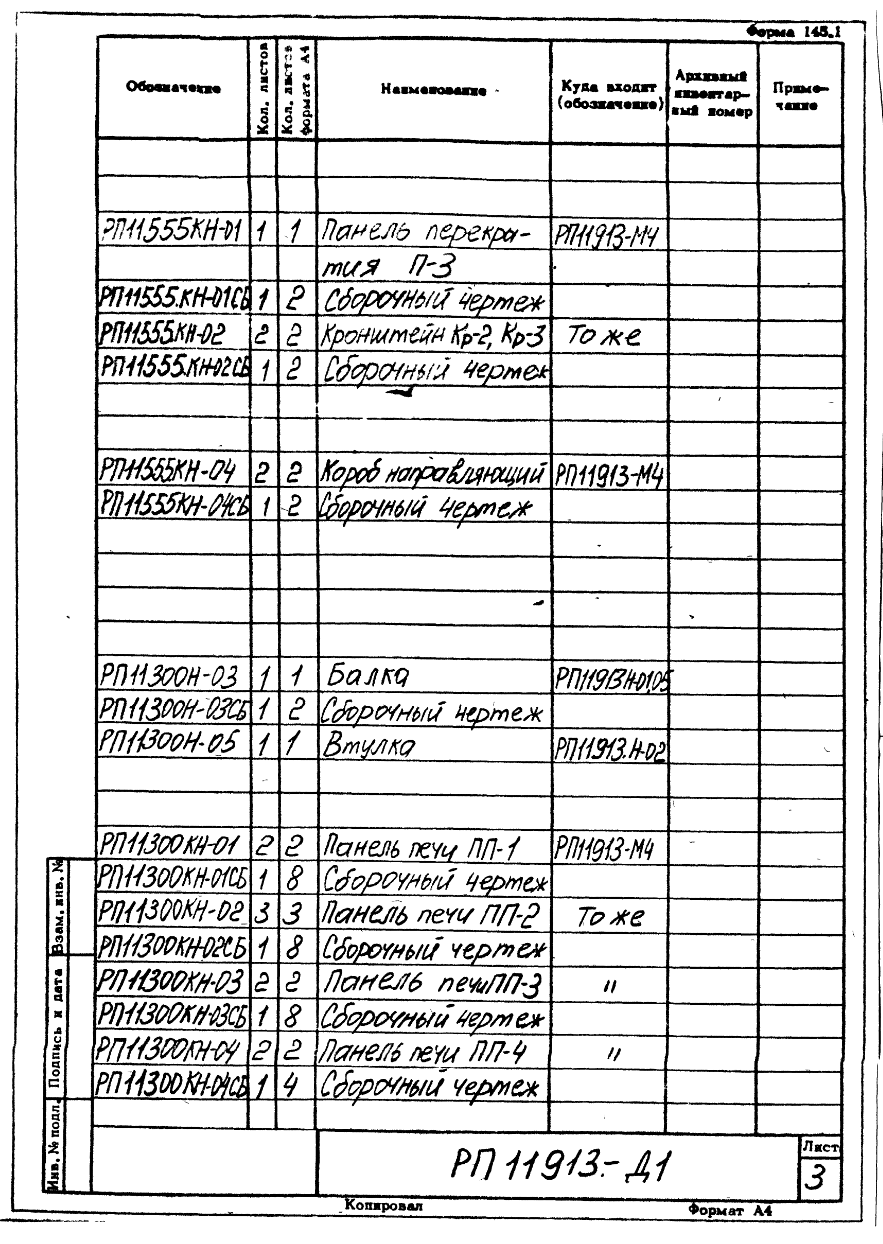 Форма 145.1
Обозначение Кол. листов Кол. листов формата А4 Наименование Куда входит (обозначение) Архивный инвентарный номер Приме-чание
РП11555КН-01 1 1 Панель перекры-
тия П-3 РП11913-М4
РП11555.КН-01СБ 1 2 Сборочный чертеж
РП11555КН-02 2 2 Кронштейн Кр-2, Кр-3 То же
РП11555.КН-02СБ 1 2 Сборочный чертеж
РП11555КН-04 2 2 Короб направляющий РП11913-М4
РП11555КН-04СБ 1 2 Сборочный чертеж
РП11300Н-03 1 1 Балка РП11913Н-01,05
РП11300Н-03СБ 1 2 Сборочный чертеж
РП11300Н-05 1 1 Втулка РП11913.Н-02
РП11300КН-01 2 2 Панель печи ПП-1 РП11913-М4
РП11300КН-01СБ 1 8 Сборочный чертеж
РП11300КН-02 3 3 Панель печи ПП-2 То же
РП11300КН-02СБ 1 8 Сборочный чертеж
РП11300КН-03 2 2 Панель печи ПП-3 "
РП11300КН-03СБ 1 8 Сборочный чертеж
РП11300КН-04 2 2 Панель печи ПП-4 "
РП11300КН-04СБ 1 4 Сборочный чертеж
Взам. инв. №
Подпись и дата
Инв. № подл.
РП 11913.-Д1
Лист
3
Копировал
Формат А4